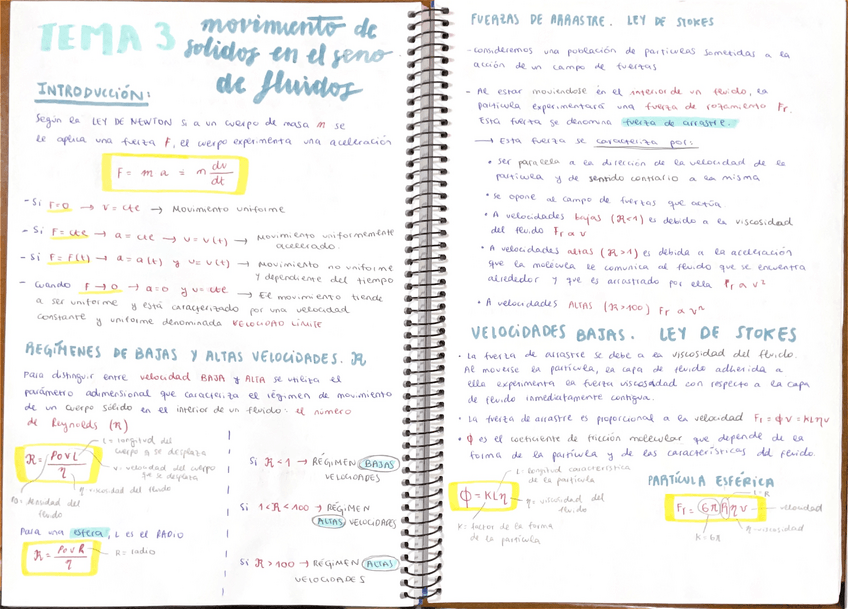 TEMA 3 movimiento de
solidos en el seno
de fluidos
INTRODUCCIÓN:
Según la LEY DE NEWTON si a un cuerpo de masa m se
le aplica una fuerza F, el cuerpo experimenta una aceleración
F = m a = m dv/dt
- Si F=0 → v = cte → Movimiento uniforme
- Si F = cte → a = cte → v = v(t) → Movimiento uniformemente
acelerado.
- Si F = F(t) → a = a(t) y v = v(t) → Movimiento no uniforme
y dependiente del tiempo
- Cuando F → 0 → a=0 y v=cte → El movimiento tiende
a ser uniforme y está caracterizado por una velocidad
constante y uniforme denominada VELOCIDAD LÍMITE
REGÍMENES DE BAJAS Y ALTAS VELOCIDADES. R
Para distinguir entre velocidad BAJA y ALTA se utiliza el
parámetro adimensional que caracteriza el régimen de movimiento
de un cuerpo sólido en el interior de un fluido: el número
de Reynolds (R)
L = longitud del
cuerpo q se desplaza
R = ρ0 v L / η
v = velocidad del cuerpo
que se desplaza
η = viscosidad del fluido
ρ0 = densidad del
fluido
Para una esfera, L es el RADIO
R = ρ0 v R / η
R = radio
Si R < 1 → RÉGIMEN BAJAS
VELOCIDADES
Si 1 < R < 100 → RÉGIMEN
ALTAS VELOCIDADES
Si R > 100 → RÉGIMEN ALTAS
VELOCIDADES
FUERZAS DE ARRASTRE. LEY DE STOKES
- Consideremos una población de partículas sometidas a la
acción de un campo de fuerzas
- Al estar moviéndose en el interior de un fluido, la
partícula experimentará una fuerza de rozamiento Fr.
Esta fuerza se denomina fuerza de arrastre.
→ Esta fuerza se caracteriza por:
• Ser paralela a la dirección de la velocidad de la
partícula y de sentido contrario a la misma
• Se opone al campo de fuerzas que actúa
• A velocidades bajas (R<1) es debido a la viscosidad
del fluido Fr α v
• A velocidades altas (R>1) es debida a la aceleración
que la molécula le comunica al fluido que se encuentra
alrededor y que es arrastrado por ella Fr α v²
• A velocidades ALTAS (R>100) Fr α vⁿ
VELOCIDADES BAJAS. LEY DE STOKES
• La fuerza de arrastre se debe a la viscosidad del fluido.
Al moverse la partícula, la capa de fluido adherida a
ella experimenta la fuerza viscosidad con respecto a la capa
de fluido inmediatamente contigua.
• La fuerza de arrastre es proporcional a la velocidad Fr = ϕ v = KLηv
• ϕ es el coeficiente de fricción molecular que depende de la
forma de la partícula y de las características del fluido.
L = Longitud característica
de la partícula
ϕ = KLη
η = viscosidad del
fluido
K = factor de la forma
de la partícula
PARTÍCULA ESFÉRICA
L = R
Fr = 6π R η v
velocidad
η = viscosidad
K = 6π